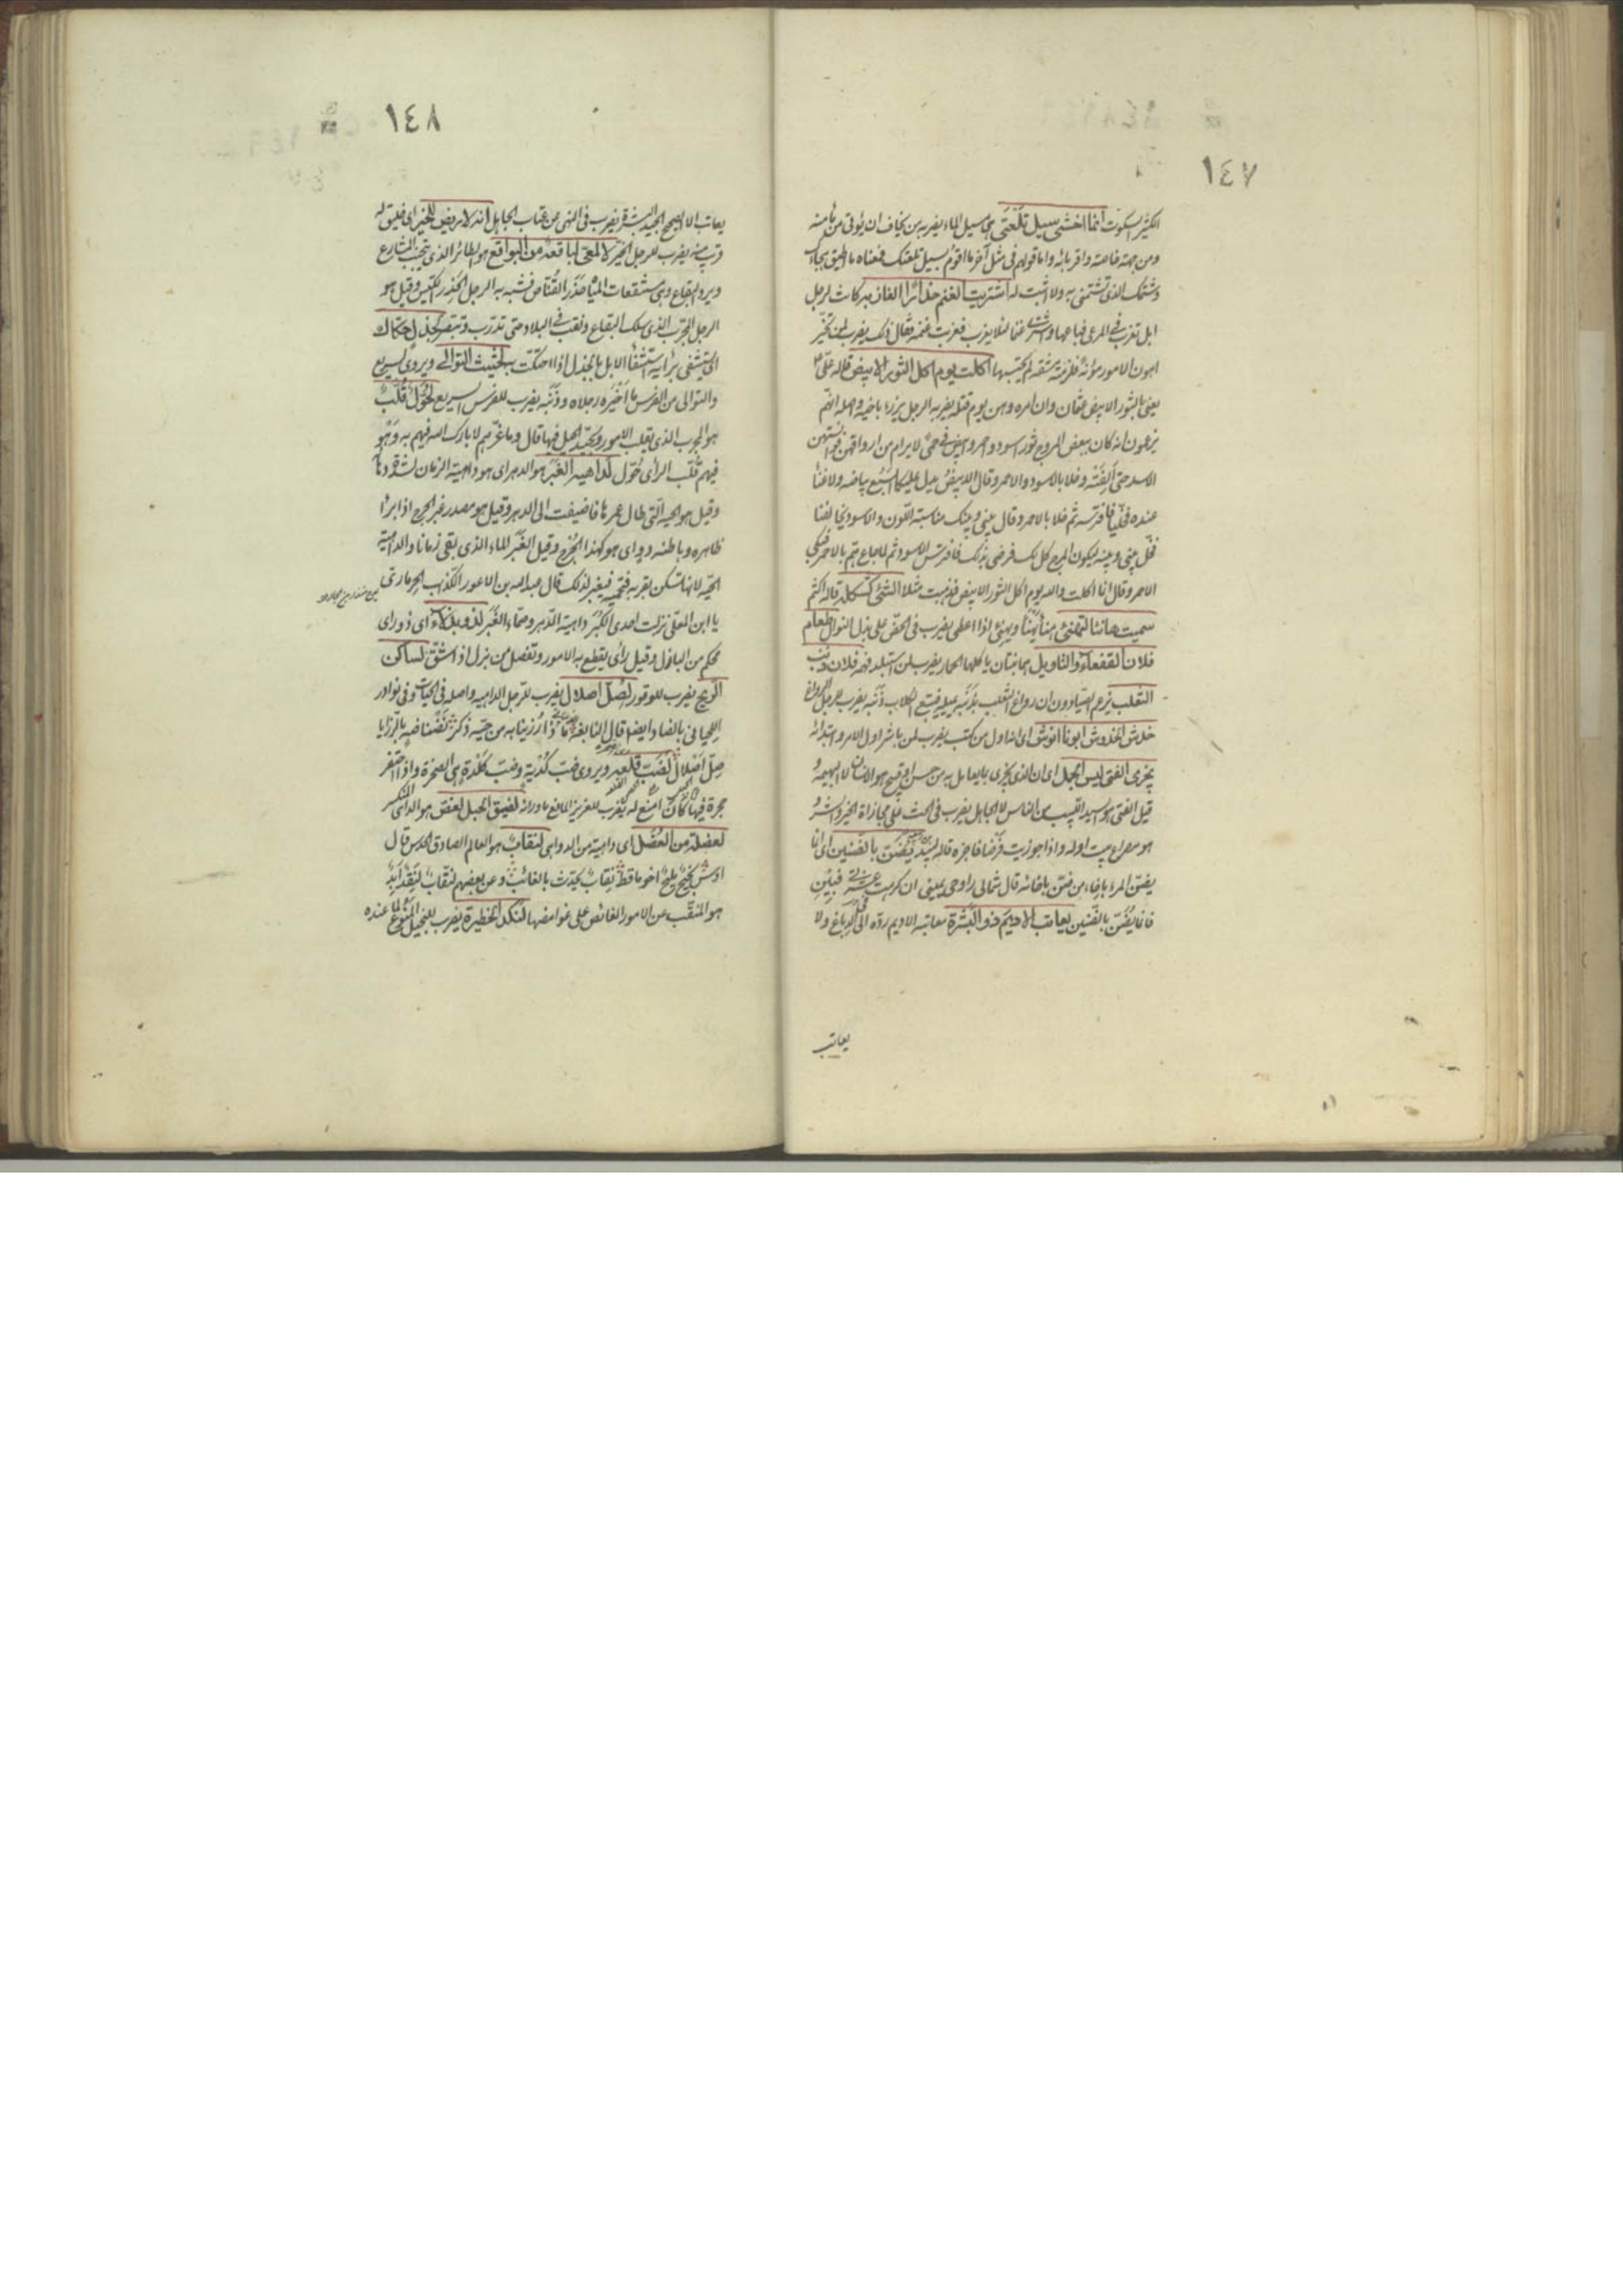 ١٤٧
الكثير السكوت انما اخشى سيل تلعتى هى مسيل الماء يضربه من يخاف ان يؤتى من مأمنه
ومن جهة خاصته واقربائه واما قولهم فى مثل آخر ما اقوم بسيل تلعتك فمعناه ما اطيق هجاءك
وشتمك الذى تشتمنى به ولا اثبت له اشتريت الغنم حذار العازبة كانت لرجل
ابل تعزب فى المرعى فباعها واشترى غنما لئلا يعزب فعزبت غنمه فقال ذلك يضرب لمن تخير
اهون الامور مؤنة فلزمته مشقة لم يحتسبها اكلت يوم اكل الثور الابيض قاله على
يعنى بالثور الابيض عثمان وان امره وهن يوم قتله يضربه الرجل يرزأ باخيه واصله انهم
يزعمون انه كان ببعض المروج ثور اسود واحمر وابيض فى حمى لا يرام من ارواقهن
الاسد حتى الفنه وخلا بالاسود والاحمر وقال الابيض يدل عليكما السبع بياضه ولا غناء
عنده فخليا فافترسه ثم خلا بالاحمر وقال بينى وبينك مناسبة اللون والاسود يخالفنا
فخل بينى وبينه ليكون المرج كله لك فرضى بذلك فافترس الاسود ثم لما جاع هم بالاحمر فبكى
الاحمر وقال انا اكلت والله يوم اكل الثور الابيض فذهبت مثلا الشئ كشكله قاله اكثم
سميت هانئا لتهنئ هنأ يهنأ ويهنئ اذا اعطى يضرب فى الحض على بذل النوال طعام
فلان القفعاء والتاويل هما نبتان ياكلهما الحمار يضرب لمن استبلد فهمه فلان ذنب
الثعلب يزعم الصيادون ان رواغ الثعلب بذنبه يميله فيتبع الكلاب ذنبه يضرب للرجل الرواغ
خدش الخدوش ابونا انوش اى اننا اول من كتب يضرب لمن باشر اول الامر وابتدائه
يجزى الفتى ليس الجمل اى ان الذى يجزى بما يعامل به من حسن او قبيح هو الانسان لا البهيمة و
قيل الفتى هو السيد اللبيب من الناس لا الجاهل يضرب فى الحث على مجازاة الخير والشر
هو مصراع بيت اوله واذا جوزيت قرضا فاجزه قاله لبيد
فانما يضن بالضنين يعاتب الاديم ذو البشرة معاتبة الاديم رده الى الدباغ ولا
يعاتب
١٤٨
يعاتب الا الصحيح الجيد البشرة يضرب فى النهى عن عتاب الجاهل انه لاريض للخير اى خليق له
قريب منه يضرب للرجل الخير الالمعى لباقعة من البواقع هو الطائر الذى يتجنب المشارع
ويرد البقاع وهى مستنقعات المياه حذر القناص فشبه به الرجل الحذر الكيس وقيل هو
الرجل المجرب الذى سلك البقاع ونقب فى البلاد حتى تدرب وتبصر لجذل حكاك
اى يستشفى برأيه استشفاء الابل بالجذل اذا احتكت به لحثيث التوالى ويروى لسريع
والتوالى من الفرس مآخيره رجلاه وذنبه يضرب للفرس السريع لحول قلب
هو المجرب الذى يقلب الامور ويجيد الحيل فيها قال وما غرهم لا بارك الله فيهم به وهو
فيهم قلب الرأى حول لداهية الغبر هو الدهر اى هو داهية الزمان لشدة دهائه
وقيل هو الحية التى طال عمرها فاضيفت الى الدهر وقيل هو مصدر غبر الجرح اذا برأ
ظاهره وباطنه دوٍ اى هو كهذا الجرح وقيل الغبر الماء الذى بقى زمانا والداهية
الحية لانها تسكن بقربه فتحميه فيغبر لذلك قال عبدالله بن الاعور الكذاب الحرمازى
يا ابن المعلى نزلت احدى الكبر داهية الدهر وصماء الغبر لذو بزلاء اى ذو راى
محكم من البازل وقيل رأى يقطع به الامور وتفصل من بزل اذا شق لساكن
الريح يضرب للوقور لصل اصلال يضرب للرجل الداهية واصله فى الحيات وفى نوادر
اللحيانى بالضاد ايضا قال النابغة ماذا رزئنا به من حية ذكر نضناضة بالرزايا
صل اصلال لضب قلعة ويروى ضب كدية وضب كلدة هى الصخرة واذا احتفر
جحره فيها كان امنع له يضرب للعزيز المانع ما وراءه لضيق الحبل لعضق هو الداهى المنكر
لعضلة من العضل اى داهية من الدواهى لنقاب هو العالم الصادق الحدس قال
اوس نجيح مليح اخو مأقط نقاب يحدث بالغائب وعن بعضهم لنقاب
هو المنقب عن الامور الغائص على غوامضها لنكد الحظيرة يضرب للبخيل المنوع لما عنده